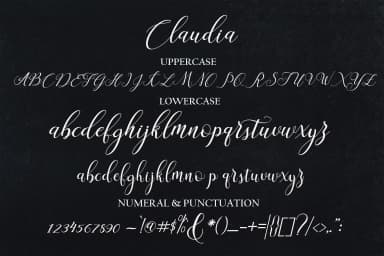 Claudia
UPPERCASE
ABCDEFGHIJKLMNOPQRSTUVWXYZ
LOWERCASE
abcdefghijklmnopqrstuvwxyz
abcdefghijklmno p qrstuvwxyz
NUMERAL & PUNCTUATION
1234567890 ~'!@#$%&*()_-+=|{}[]?/<>,.":